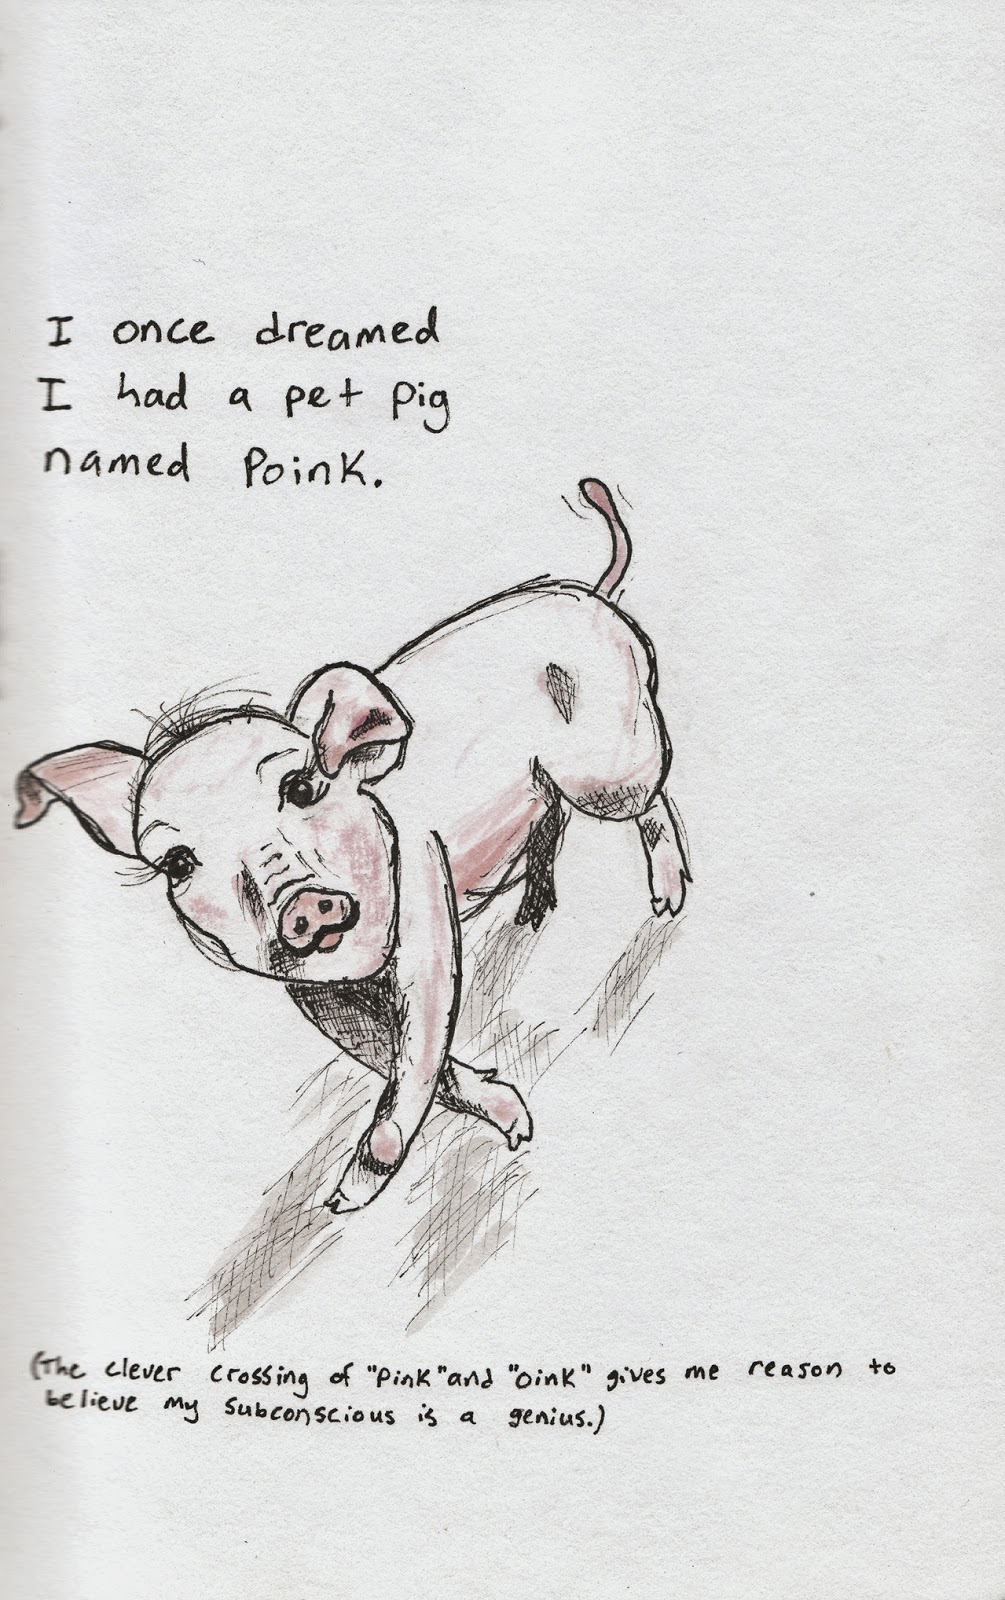 I once dreamed
I had a pet pig
named Poink.
(The clever crossing of "Pink" and "Oink" gives me reason to
believe my subconscious is a genius.)